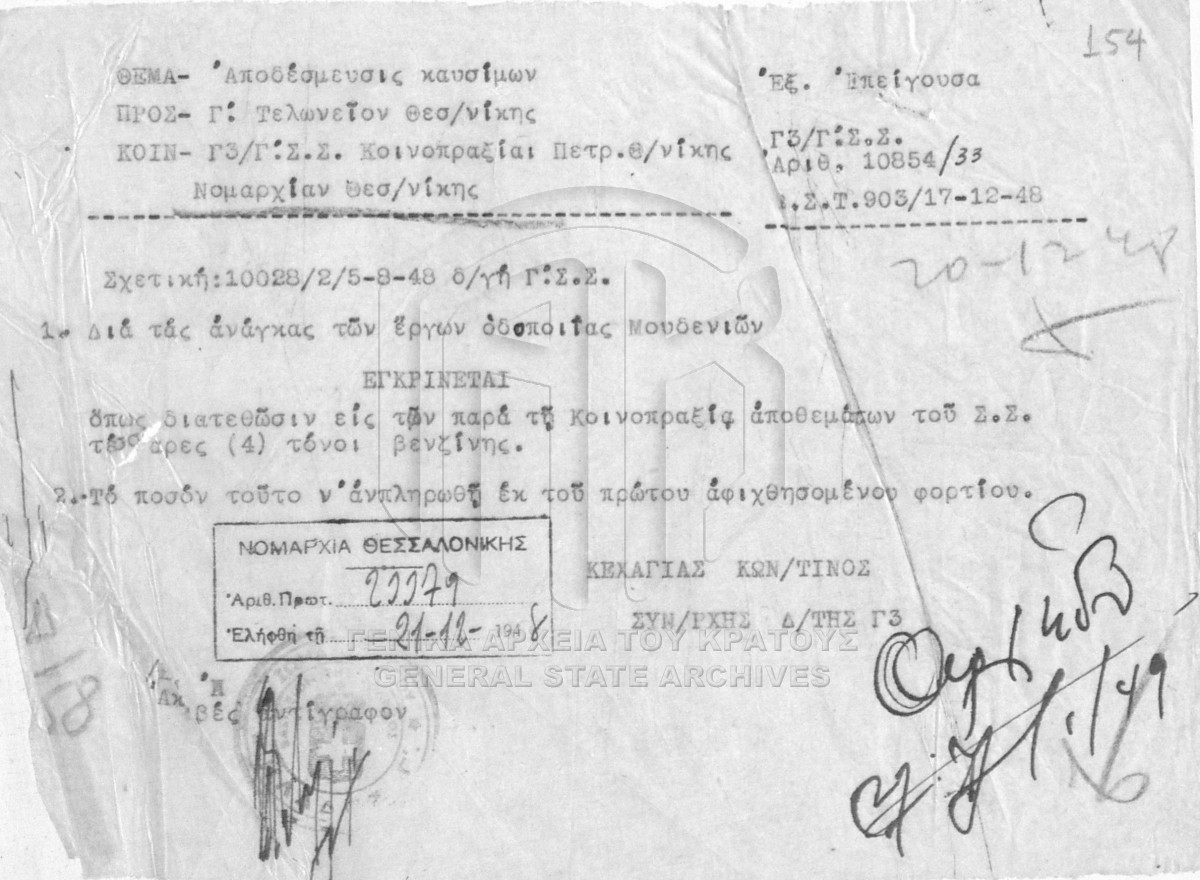 154
ΘΕΜΑ- Ἀποδέσμευσις καυσίμων
ΠΡΟΣ- Γ! Τελωνεῖον Θεσ/νίκης
ΚΟΙΝ- Γ3/Γ!Σ.Σ. Κοινοπραξίαι Πετρ.Θ/νίκης
Νομαρχίαν Θεσ/νίκης
Ἐξ. Ἐπείγουσα
Γ3/Γ!Σ.Σ.
Ἀριθ. 10854/33
Σ.Τ.903/17-12-48
20-12-48
Σχετική:10028/2/5-8-48 δ/γή Γ!Σ.Σ.
1. Διά τάς ἀνάγκας τῶν ἔργων ὁδοποιΐας Μουδενιῶν
ΕΓΚΡΙΝΕΤΑΙ
ὅπως διατεθῶσιν εἰς τῶν παρά τῇ Κοινοπραξίᾳ ἀποθεμάτων τοῦ Σ.Σ.
τέσσαρες (4) τόνοι βενζίνης.
2. Τό ποσόν τοῦτο ν'ἀνπληρωθῇ ἐκ τοῦ πρώτου ἀφιχθησομένου φορτίου.
ΝΟΜΑΡΧΙΑ ΘΕΣΣΑΛΟΝΙΚΗΣ
Ἀριθ. Πρωτ. 23379
Ἐλήφθη τῇ 21-12- 1948
ΚΕΧΑΓΙΑΣ ΚΩΝ/ΤΙΝΟΣ
ΣΥΝ/ΡΧΗΣ Δ/ΤΗΣ Γ3
ΓΕΝΙΚΑ ΑΡΧΕΙΑ ΤΟΥ ΚΡΑΤΟΥΣ
GENERAL STATE ARCHIVES
Ἀκριβές ἀντίγραφον